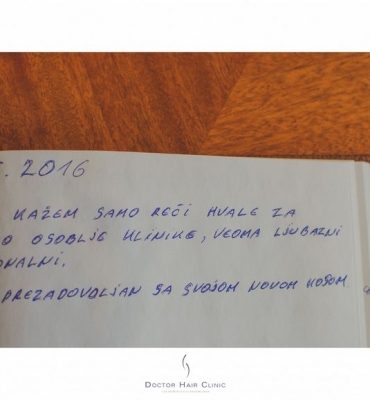 . 2016
KAŽEM SAMO REČI HVALE ZA
O OSOBLJE KLINIKE, VEOMA LJUBAZNI
ONALNI.
PREZADOVOLJAN SA SVOJOM NOVOM KOSOM.
DOCTOR HAIR CLINIC